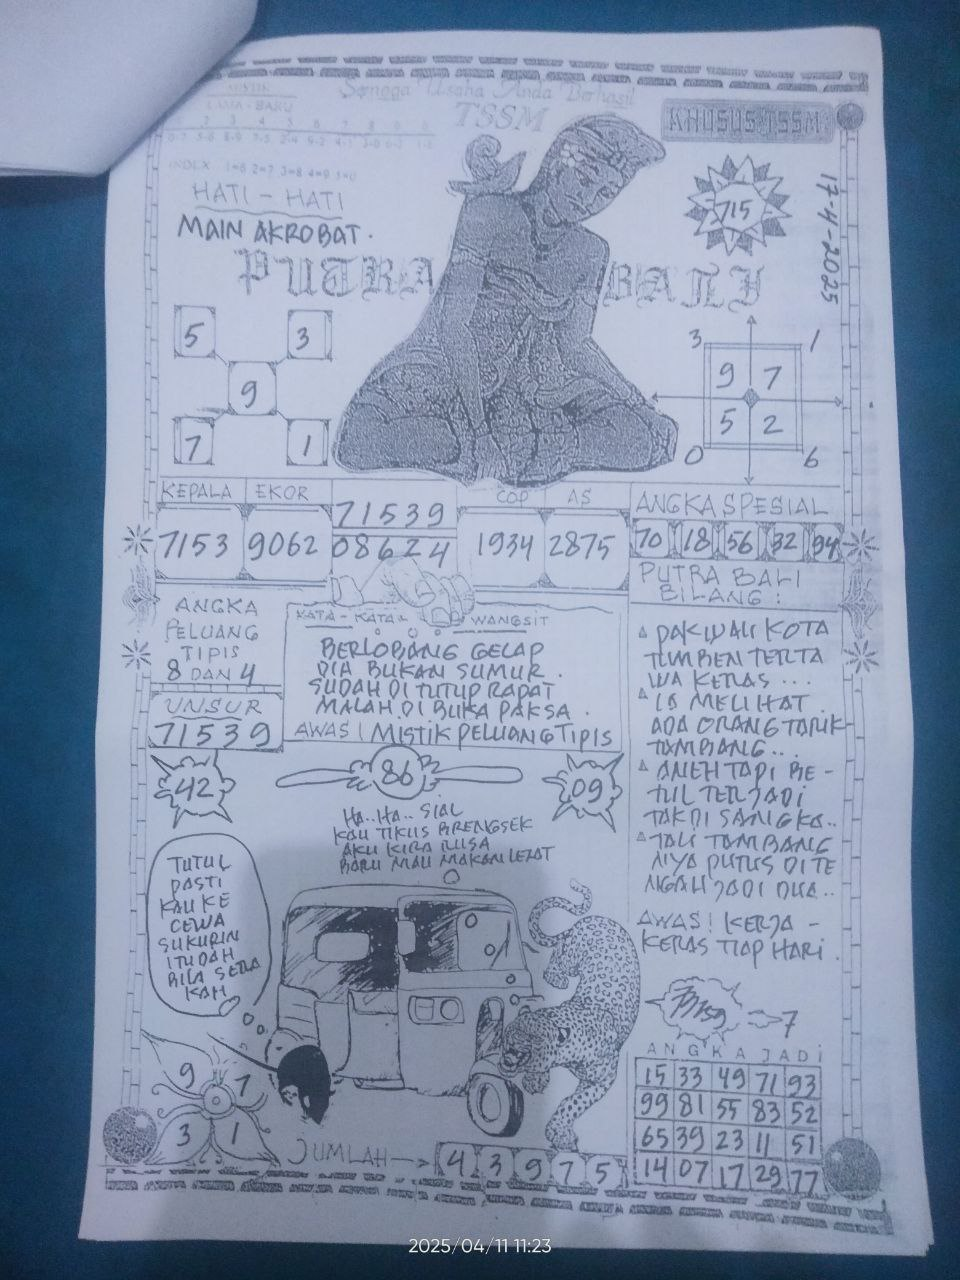 Semoga Usaha Anda Berhasil
TSSM
KHUSUS TSSM
LAMA - BARU
INDEX 1=6 2=7 3=8 4=9 5=0
HATI - HATI
MAIN AKROBAT.
715
17-4-2025
PUTRA BALI
5 3
9
7 1
3 1
9 7
5 2
0 6
KEPALA EKOR
7153 9062
71539
08624
COP AS
1934 2875
ANGKA SPESIAL
70 18 56 32 94
PUTRA BALI
BILANG :
ANGKA
PELUANG
TIPIS
8 DAN 4
UNSUR
71539
KATA - KATA WANGSIT
BERLOBANG GELAP
DIA BUKAN SUMUR.
SUDAH DI TUTUP RAPAT
MALAH DI BUKA PAKSA.
AWAS! MISTIK PELUANG TIPIS
PAKWALI KOTA
TUMBEN TERTA
WA KERAS ...
MELIHAT
ADA ORANG TARIK
TAMBANG...
ANEH TAPI BE -
TUL TERJADI
TAK DI SANGKA..
TALI TAMBANG
NYA PUTUS DI TE
NGAH JADI DUA..
AWAS! KERJA -
KERAS TIAP HARI.
42
86
09
HA..HA.. SIAL
KAU TIKUS BRENGSEK
AKU KIRA RUSA
BARU MAU MAKAN LEZAT
TUTUL
PASTI
KAU KE
CEWA
SUKURIN
ITUDAH
BILA SERA
KAH
9 7
3 1
JUMLAH
4 3 9 7 5
7
ANGKA JADI
15 33 49 71 93
99 81 55 83 52
65 39 23 11 51
14 07 17 29 77
2025/04/11 11:23